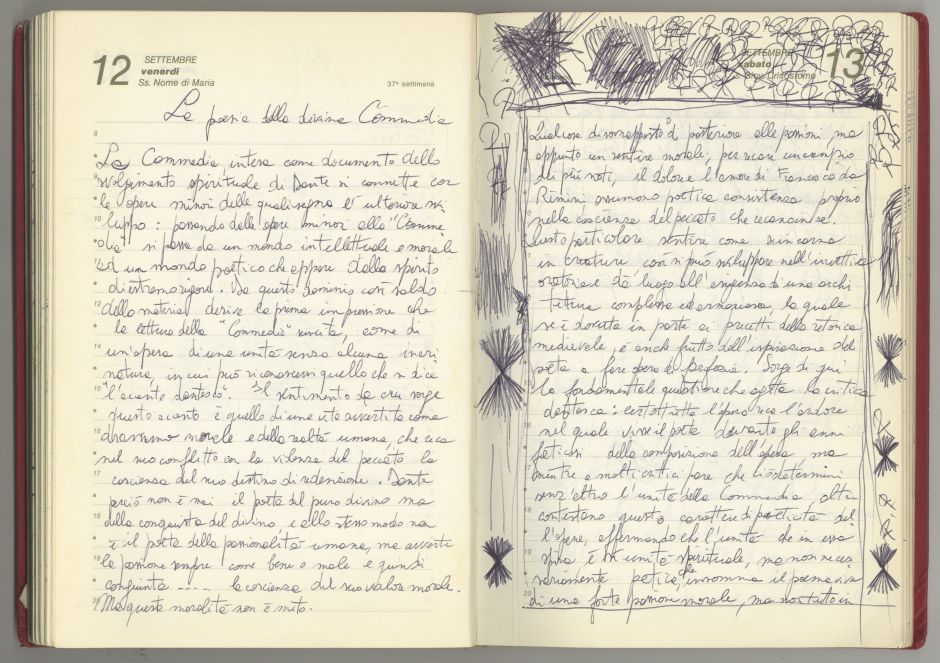 12
SETTEMBRE
venerdì
Ss. Nome di Maria
37ª settimana
La poesia della divina Commedia
La Commedia intesa come documento dello
svolgimento spirituale di Dante si connette con
le opere minori delle quali segna l'ulteriore svi
luppo: passando dalle opere minori alla "Comme
dia" si passa da un mondo intellettuale e morale
ad un mondo poetico che appare dallo spirito
di estremo rigore. Da questo dominio così saldo
della materia deriva la prima impressione che
la lettura della "Commedia" suscita, come di
un'opera di una unità senza alcuna incri
natura, in cui può riconoscersi quello che si dice
"l'accento dantesco". Il sentimento da cui sorge
questo accento è quello di una vita avvertita come
dramma morale e della realtà umana, che cerca
nel suo conflitto con la violenza del peccato la
coscienza del suo destino di redenzione. Dante
perciò non è mai il poeta del puro divino ma
della conquista del divino, e allo stesso modo non
è il poeta della passionalità umana, ma avverte
la passione sempre come bene o male e quindi
congiunta ..... la coscienza del suo valore morale.
Ma questa moralità non è mito.
SETTEMBRE
sabato
13
Qualcosa di sovrapposto o di posteriore alle passioni, ma
appunto un sentire morale, per recare un esempio
dei più noti, il dolore e l'amore di Francesca da
Rimini assumono poetica consistenza proprio
nella coscienza del peccato che
Questo particolare sentire come si incarna
in creature così si può sviluppare nell'invettiva
oratoria e dà luogo all'esigenza di una archi
tettura complessa ed armoniosa, la quale
se è dovuta in parte ai precetti della retorica
medievale, è anche frutto dell'ispirazione del
poeta a fare opera di Sorge di qui
la fondamentale questione che agita la critica
dantesca: tutta l'opera reca l'ardore
nel quale visse il poeta durante gli anni
faticosi della composizione dell'opera ma
mentre a molti critici pare che ciò determini
senz'altro l'unità della Commedia, altri
contestano questo carattere di poeticità del
l'opera, affermando che l'unità che in essa
spira è un'unità spirituale, ma non neces
sariamente poetica, che insomma il poema vive
di una forte passione morale, ma non tutto in